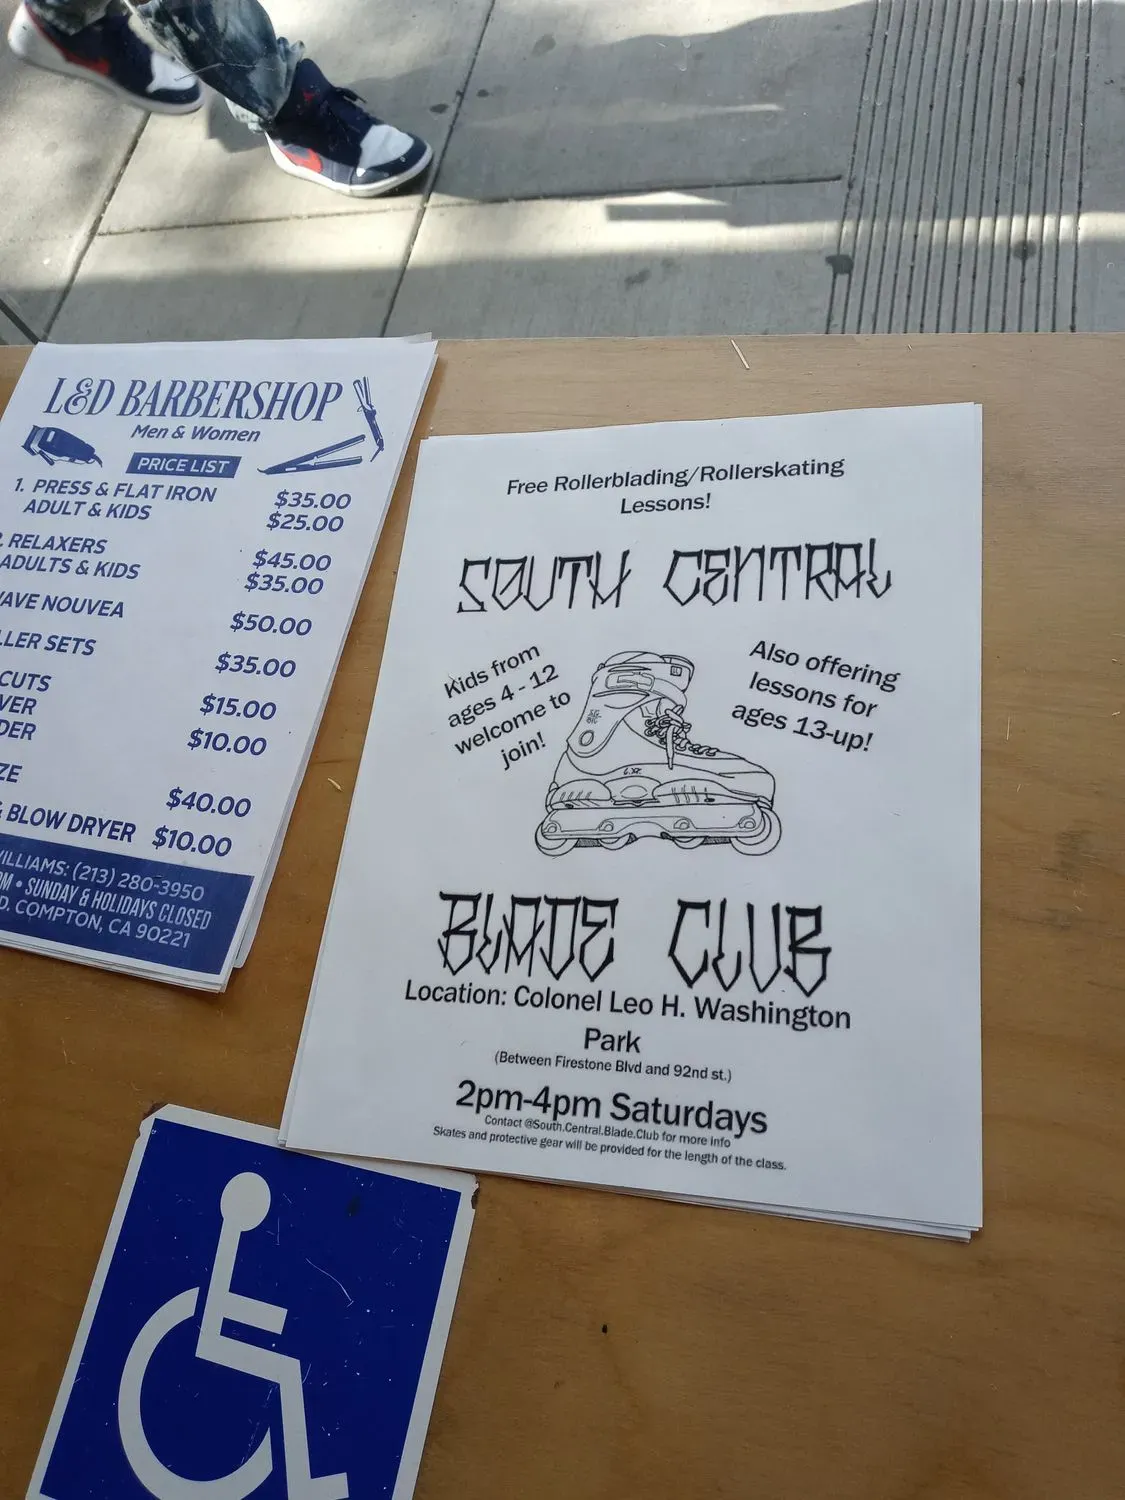 L&D BARBERSHOP
Men & Women
PRICE LIST
1. PRESS & FLAT IRON $35.00
ADULT & KIDS $25.00
RELAXERS $45.00
ADULTS & KIDS $35.00
NOUVEA $50.00
SETS $35.00
CUTS $15.00
$10.00
$40.00
& BLOW DRYER $10.00
(213) 280-3950
• SUNDAY & HOLIDAYS CLOSED
COMPTON, CA 90221
Free Rollerblading/Rollerskating
Lessons!
SOUTH CENTRAL
Kids from
ages 4 - 12
welcome to
join!
Also offering
lessons for
ages 13-up!
BLADE CLUB
Location: Colonel Leo H. Washington
Park
(Between Firestone Blvd and 92nd st.)
2pm-4pm Saturdays
Contact @South.Central.Blade.Club for more info
Skates and protective gear will be provided for the length of the class.